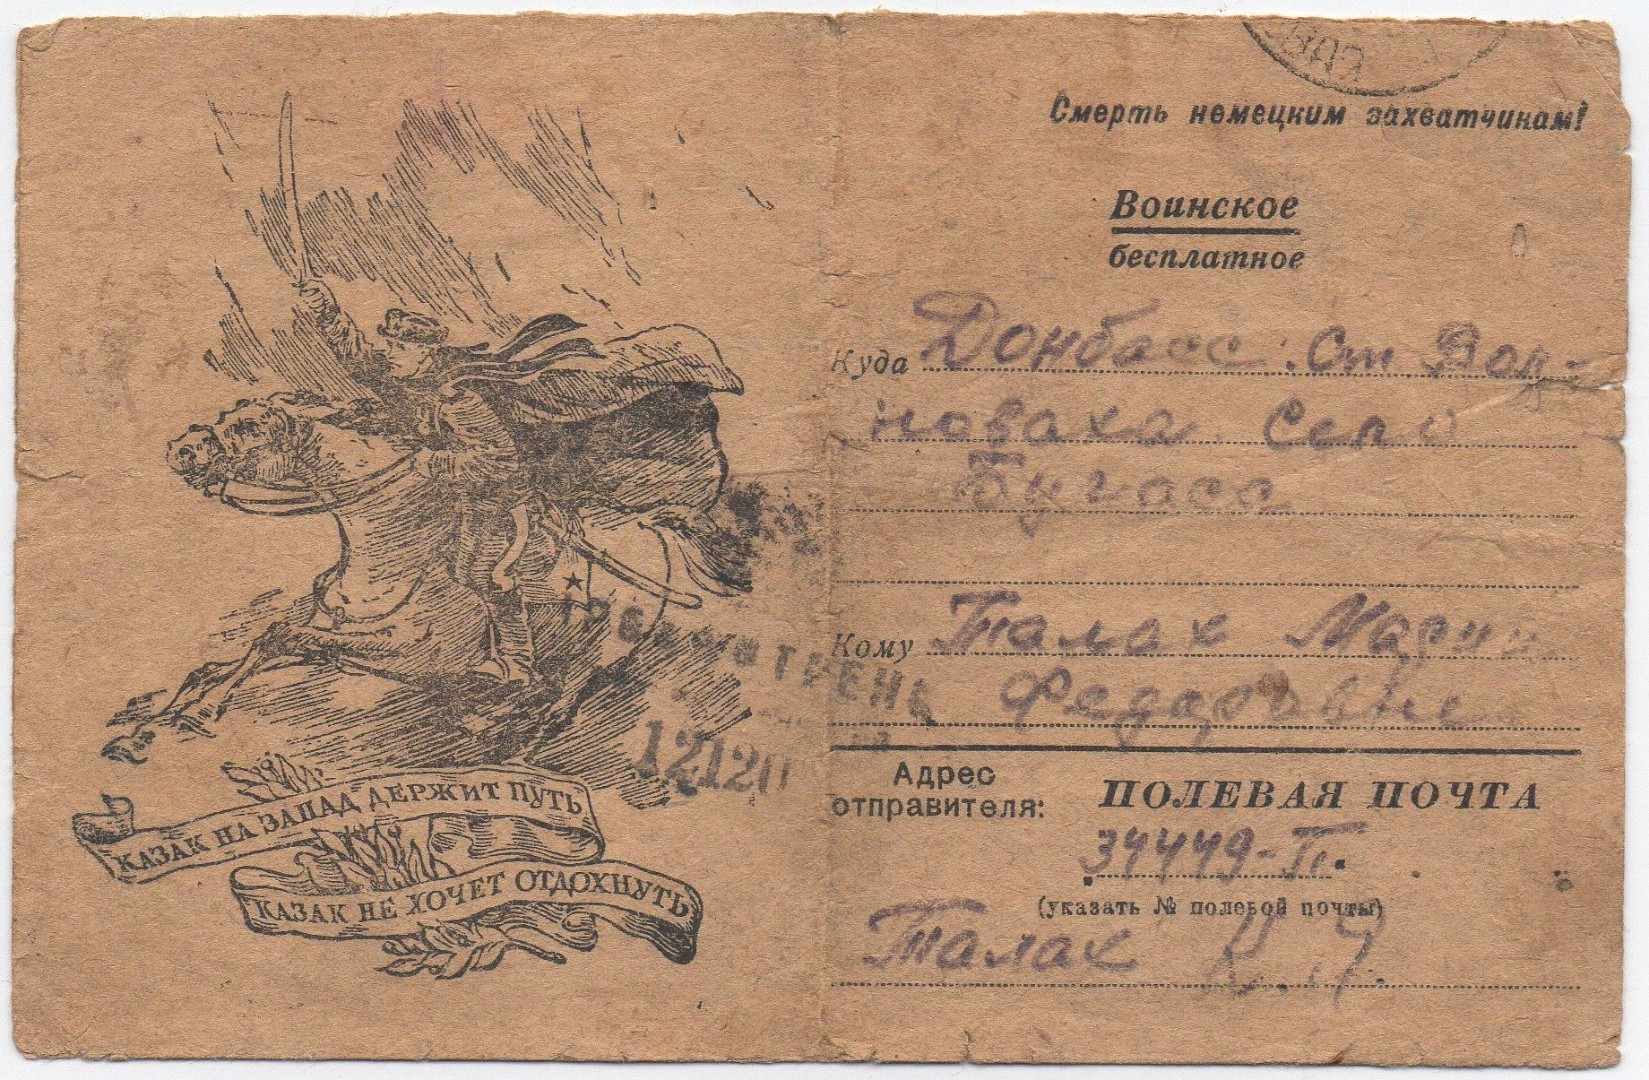 Смерть немецким захватчикам!
Воинское
бесплатное
Куда Донбасс. Ст Вол-
новаха Село
Бугасс
Кому Талах Марии
Федоровне
Адрес отправителя: ПОЛЕВАЯ ПОЧТА
34449-П.
(указать № полевой почты)
Талах К. И.
КАЗАК НА ЗАПАД ДЕРЖИТ ПУТЬ
КАЗАК НЕ ХОЧЕТ ОТДОХНУТЬ
12120